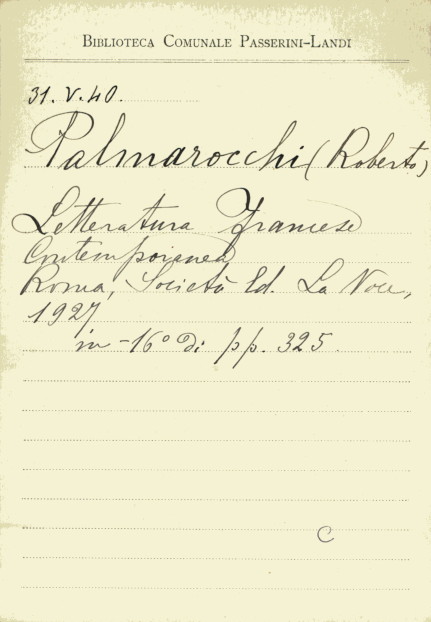 BIBLIOTECA COMUNALE PASSERINI-LANDI
31.V.40.
Palmarocchi (Roberto)
Letteratura Francese
Contemporanea
Roma, Società Ed. La Voce,
1927
in-16° di pp. 325.
C